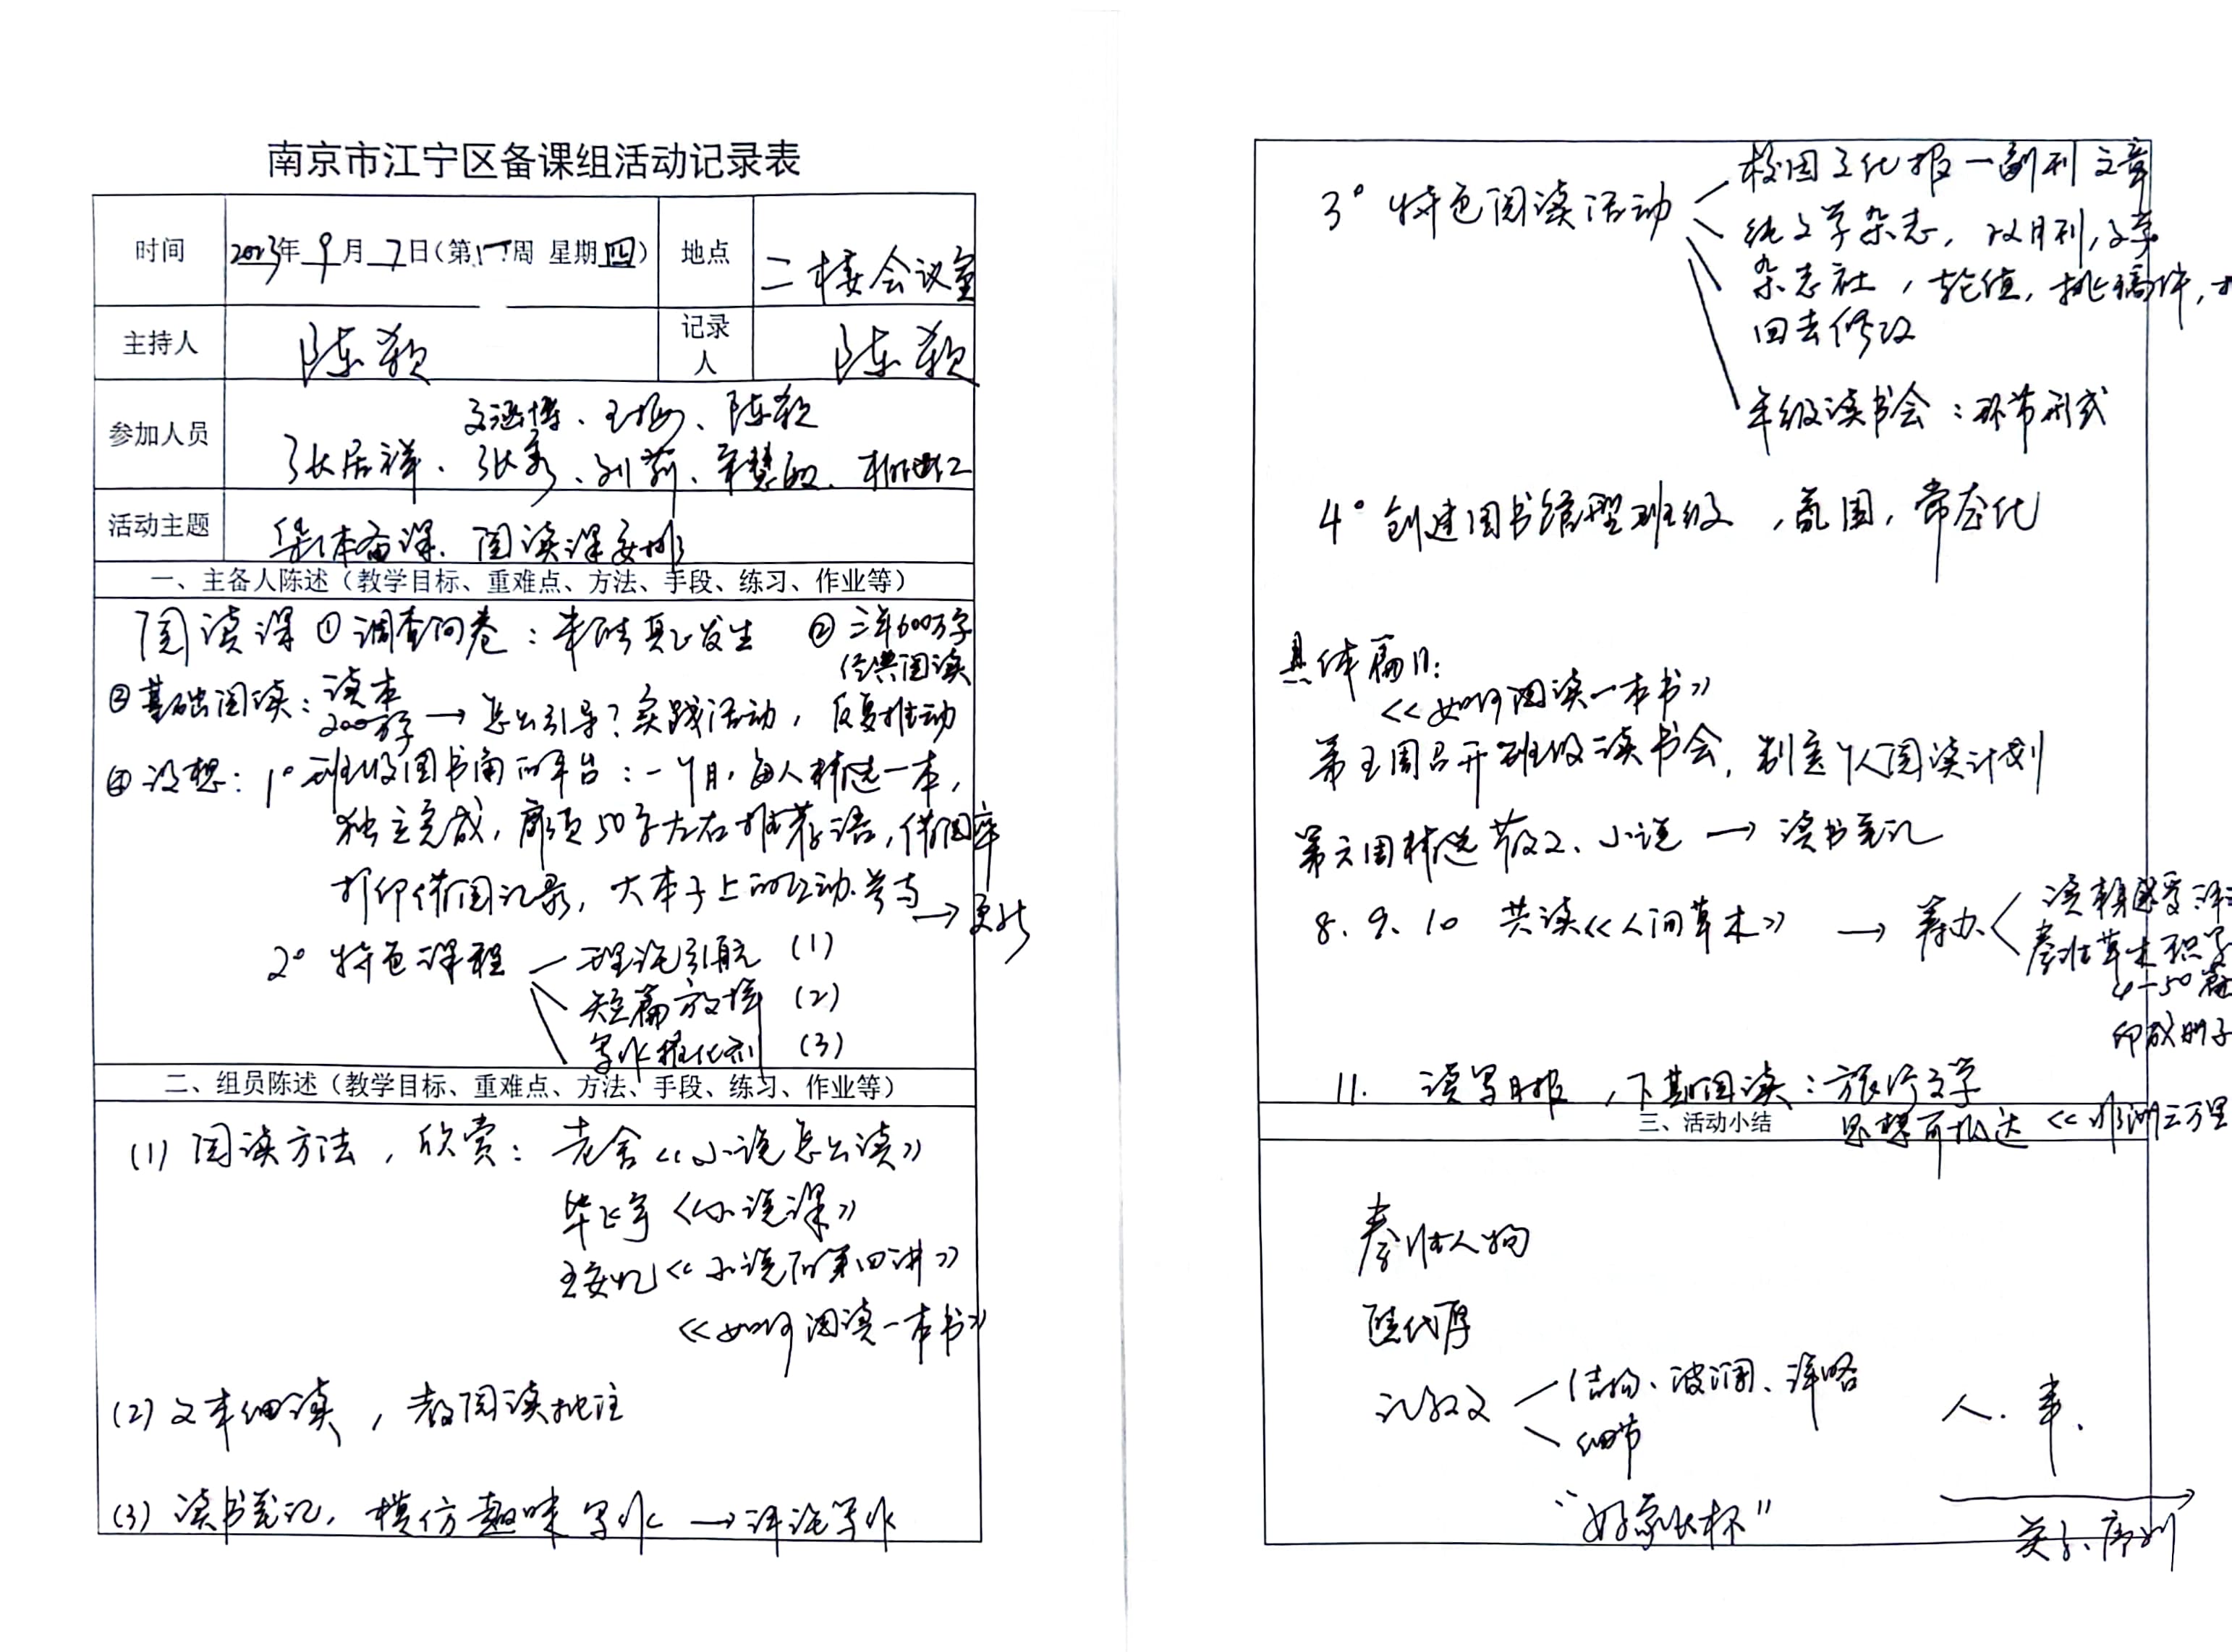 南京市江宁区备课组活动记录表
时间 2023年9月7日(第一周 星期四) 地点 二楼会议室
主持人 陈颖 记录人 陈颖
参加人员 陈颖
张居祥、张秀、刘莉、
活动主题 集体备课、阅读课安排
一、主备人陈述(教学目标、重难点、方法、手段、练习、作业等)
阅读课 ①调查问卷: 真正发生 ②三年600万字
经典阅读
③基础阅读:读本
200万字 → 怎么引导?实践活动,反复推动
④设想:1°班级图书角的平台:一个月,每人挑选一本,
独立完成,扉页50字左右推荐语,借阅率
打印借阅记录,大本子上的互动参与 → 更新
2° 特色课程 理论引航 (1)
短篇 (2)
写作催化剂 (3)
二、组员陈述(教学目标、重难点、方法、手段、练习、作业等)
(1) 阅读方法,欣赏:老舍《小说怎么读》
毕飞宇《小说课》
王安忆《小说的第四讲》
《如何阅读一本书》
(2) 文本细读,教阅读批注
(3) 读书笔记,模仿趣味写作 → 评论写作
3° 特色阅读活动 校园文化报一副刊文章
纯文学杂志,以月刊,文学
杂志社,轮值,挑稿件,
回去修改
年级读书会:环节形式
4° 创建图书馆型班级,氛围,常态化
具体篇目:
《如何阅读一本书》
第五周召开班级读书会,制定个人阅读计划
第六周挑选散文、小说 → 读书笔记
8、9、10 共读《人间草木》 → 筹办 读书感受
秦淮草木
50篇
印成册子
11. 读写月报,下期阅读:旅行文学
三、活动小结
思想可抵达《非洲三万里
秦淮人物
记叙文 结构、波澜、详略
细节
人、事、
“好家长杯”